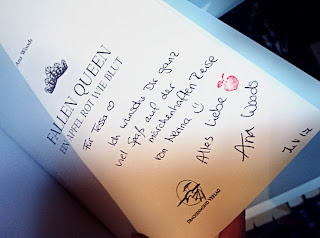 Ana Woods
FALLEN QUEEN
EIN APFEL ROT WIE BLUT
Für Tessa ♡
Ich wünsche Dir ganz
viel Spaß auf der
märchenhaften Reise
von Nerina ☺
Alles Liebe
Ana Woods
DRACHENMOND VERLAG